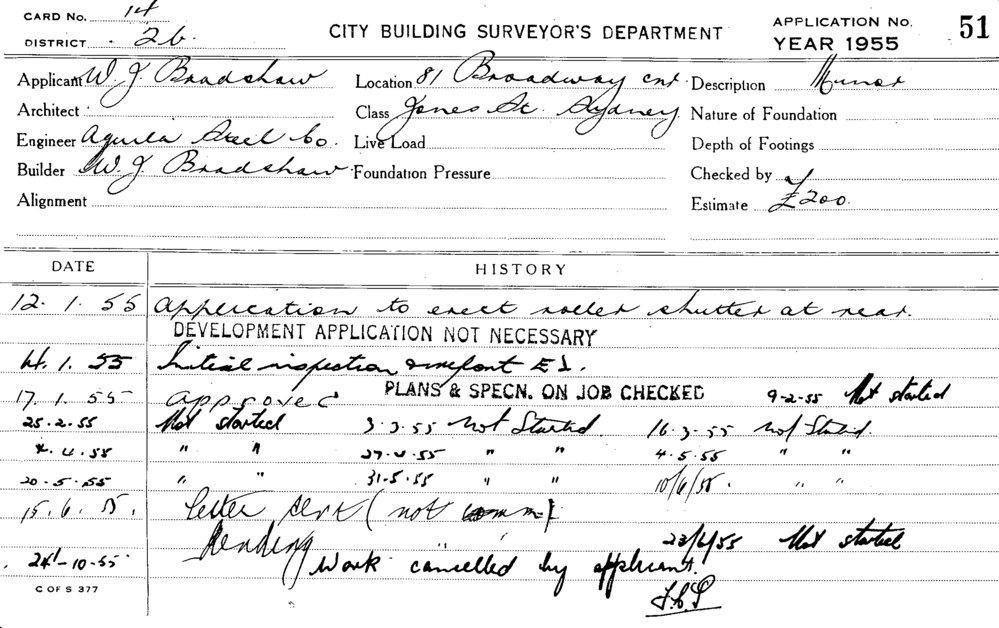 CARD No. 14
DISTRICT 26.
CITY BUILDING SURVEYOR'S DEPARTMENT
APPLICATION No. 51
YEAR 1955
Applicant W. J. Bradshaw Location 81 Broadway cnr Description Minor
Architect Class Jones St. Sydney Nature of Foundation
Engineer Aquila Steel Co. Live Load Depth of Footings
Builder W. J. Bradshaw Foundation Pressure Checked by
Alignment Estimate £200.
DATE HISTORY
12. 1. 55 Application to erect roller shutter at rear.
DEVELOPMENT APPLICATION NOT NECESSARY
14. 1. 55 Initial inspection & report
17. 1. 55 Approved PLANS & SPECN. ON JOB CHECKED 9-2-55 Not started
25. 2. 55 Not started 3-3-55 Not Started. 16-3-55 Not Started.
4. 4. 55 " " 27-4-55 " " 4-5-55 " "
20. 5. 55 " " 31.5.55 " " 10/6/55. " "
15. 6. 55. Letter sent (not
Pending 23/6/55 Not started
24-10-55 Work cancelled by applicant.
C OF S 377